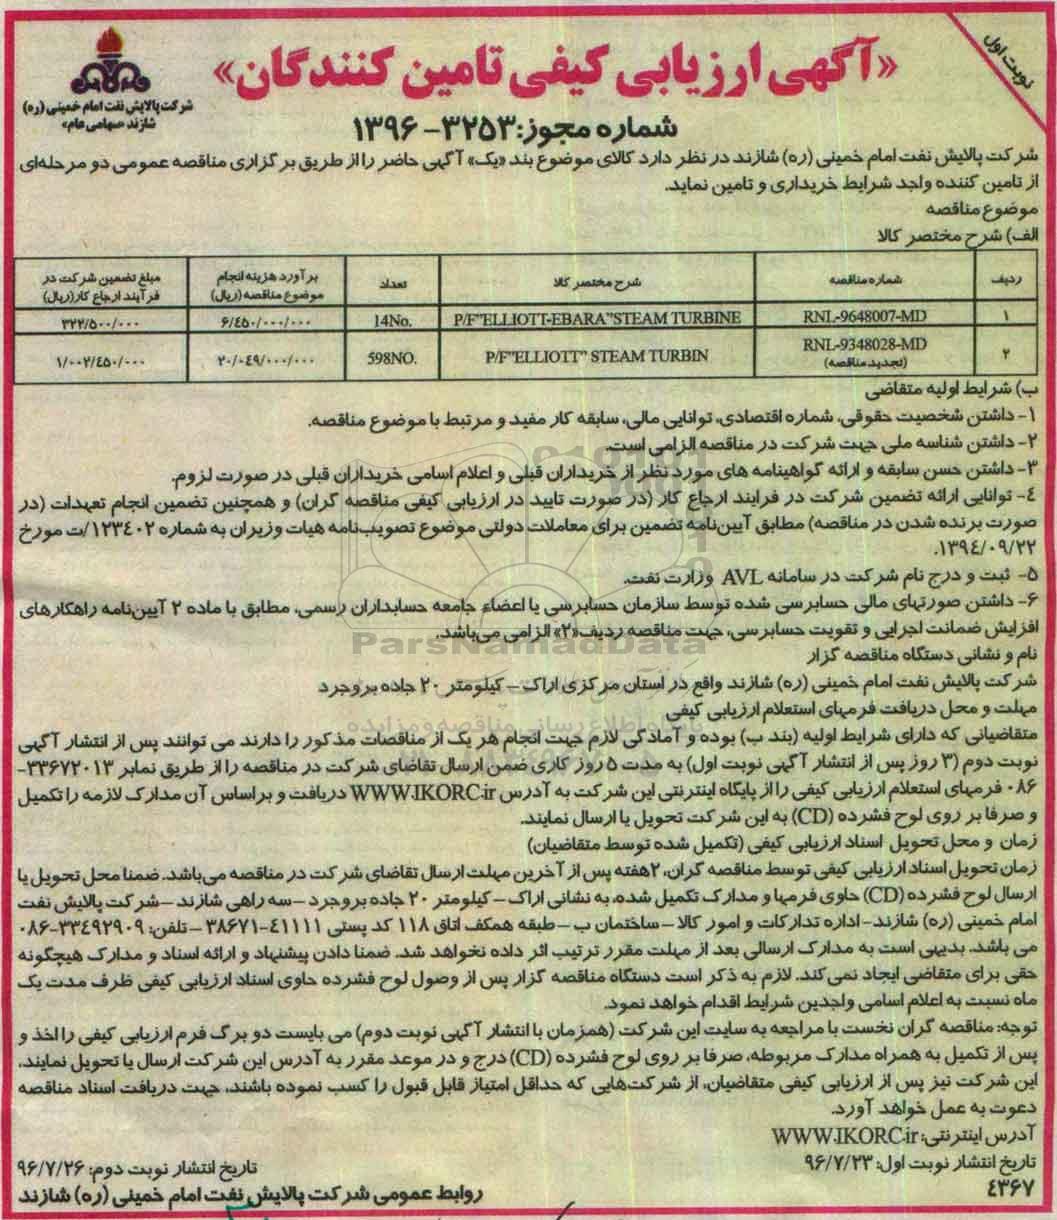 نوبت اول
«آگهی ارزیابی کیفی تامین کنندگان»
شرکت پالایش نفت امام خمینی (ره)
شازند «سهامی عام»
شماره مجوز: ۳۲۵۳- ۱۳۹۶
شرکت پالایش نفت امام خمینی (ره) شازند در نظر دارد کالای موضوع بند «یک» آگهی حاضر را از طریق برگزاری مناقصه عمومی دو مرحله‌ای
از تامین کننده واجد شرایط خریداری و تامین نماید.
موضوع مناقصه
الف) شرح مختصر کالا
ردیف | شماره مناقصه | شرح مختصر کالا | تعداد | برآورد هزینه انجام موضوع مناقصه (ریال) | مبلغ تضمین شرکت در فرآیند ارجاع کار (ریال)
۱ | RNL-9648007-MD | P/F"ELLIOTT-EBARA"STEAM TURBINE | 14No. | ۶/۴۵۰/۰۰۰/۰۰۰ | ۳۲۲/۵۰۰/۰۰۰
۲ | RNL-9348028-MD (تجدید مناقصه) | P/F"ELLIOTT" STEAM TURBIN | 598NO. | ۲۰/۰۴۹/۰۰۰/۰۰۰ | ۱/۰۰۲/۴۵۰/۰۰۰
ب) شرایط اولیه متقاضی
۱- داشتن شخصیت حقوقی، شماره اقتصادی، توانایی مالی، سابقه کار مفید و مرتبط با موضوع مناقصه.
۲- داشتن شناسه ملی جهت شرکت در مناقصه الزامی است.
۳- داشتن حسن سابقه و ارائه گواهینامه های مورد نظر از خریداران قبلی و اعلام اسامی خریداران قبلی در صورت لزوم.
٤- توانایی ارائه تضمین شرکت در فرایند ارجاع کار (در صورت تایید در ارزیابی کیفی مناقصه گران) و همچنین تضمین انجام تعهدات (در
صورت برنده شدن در مناقصه) مطابق آیین‌نامه تضمین برای معاملات دولتی موضوع تصویب‌نامه هیات وزیران به شماره ۱۲۳٤۰۲/ت مورخ
۱۳۹٤/۰۹/۲۲.
۵- ثبت و درج نام شرکت در سامانه AVL وزارت نفت.
۶- داشتن صورتهای مالی حسابرسی شده توسط سازمان حسابرسی یا اعضاء جامعه حسابداران رسمی، مطابق با ماده ۲ آیین‌نامه راهکارهای
افزایش ضمانت اجرایی و تقویت حسابرسی، جهت مناقصه ردیف«۲» الزامی می‌باشد.
ParsNamadData
نام و نشانی دستگاه مناقصه گزار
شرکت پالایش نفت امام خمینی (ره) شازند واقع در استان مرکزی اراک – کیلومتر ۲۰ جاده بروجرد
مهلت و محل دریافت فرمهای استعلام ارزیابی کیفی
متقاضیانی که دارای شرایط اولیه (بند ب) بوده و آمادگی لازم جهت انجام هر یک از مناقصات مذکور را دارند می توانند پس از انتشار آگهی
نوبت دوم (۳ روز پس از انتشار آگهی نوبت اول) به مدت ۵ روز کاری ضمن ارسال تقاضای شرکت در مناقصه را از طریق نمابر ۳۳۶۷۲۰۱۳-
۰۸۶ فرمهای استعلام ارزیابی کیفی را از پایگاه اینترنتی این شرکت به آدرس WWW.IKORC.ir دریافت و براساس آن مدارک لازمه را تکمیل
و صرفا بر روی لوح فشرده (CD) به این شرکت تحویل یا ارسال نمایند.
زمان و محل تحویل اسناد ارزیابی کیفی (تکمیل شده توسط متقاضیان)
زمان تحویل اسناد ارزیابی کیفی توسط مناقصه گران، ۲هفته پس از آخرین مهلت ارسال تقاضای شرکت در مناقصه می‌باشد. ضمنا محل تحویل یا
ارسال لوح فشرده (CD) حاوی فرمها و مدارک تکمیل شده، به نشانی اراک – کیلومتر ۲۰ جاده بروجرد –سه راهی شازند –شرکت پالایش نفت
امام خمینی (ره) شازند- اداره تدارکات و امور کالا – ساختمان ب – طبقه همکف اتاق ۱۱۸ کد پستی ٤۱۱۱۱-۳۸۶۷۱ – تلفن: ۳۳٤۹۲۹۰۹-۰۸۶
می باشد. بدیهی است به مدارک ارسالی بعد از مهلت مقرر ترتیب اثر داده نخواهد شد. ضمنا دادن پیشنهاد و ارائه اسناد و مدارک هیچگونه
حقی برای متقاضی ایجاد نمی کند. لازم به ذکر است دستگاه مناقصه گزار پس از وصول لوح فشرده حاوی اسناد ارزیابی کیفی ظرف مدت یک
ماه نسبت به اعلام اسامی واجدین شرایط اقدام خواهد نمود.
توجه: مناقصه گران نخست با مراجعه به سایت این شرکت (همزمان با انتشار آگهی نوبت دوم) می بایست دو برگ فرم ارزیابی کیفی را اخذ و
پس از تکمیل به همراه مدارک مربوطه، صرفا بر روی لوح فشرده (CD) درج و در موعد مقرر به آدرس این شرکت ارسال یا تحویل نمایند.
این شرکت نیز پس از ارزیابی کیفی متقاضیان، از شرکت‌هایی که حداقل امتیاز قابل قبول را کسب نموده باشند، جهت دریافت اسناد مناقصه
دعوت به عمل خواهد آورد.
آدرس اینترنتی: WWW.IKORC.ir
تاریخ انتشار نوبت اول: ۹۶/۷/۲۳
تاریخ انتشار نوبت دوم: ۹۶/۷/۲۶
٤۳۶۷
روابط عمومی شرکت پالایش نفت امام خمینی (ره) شازند